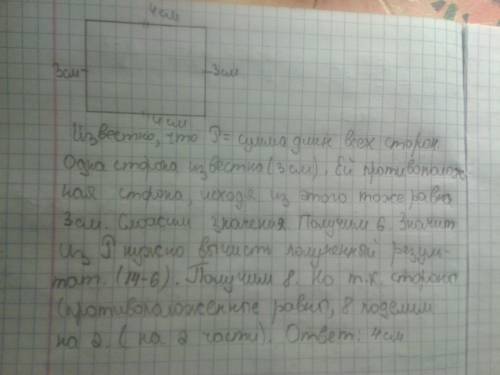 4 см
3 см
3 см
4 см
Известно, что P = сумма длин всех сторон
Одна сторона известна (3 см). Ей противополож-
ная сторона, исходя из этого тоже равна
3 см. Сложим значения. Получим 6. Значит
из P нужно вычисть полученный резуль-
тат. (14-6). Получим 8. Но т.к. стороны
(противоположенные равны, 8 поделим
на 2. (на 2 части). Ответ: 4 см